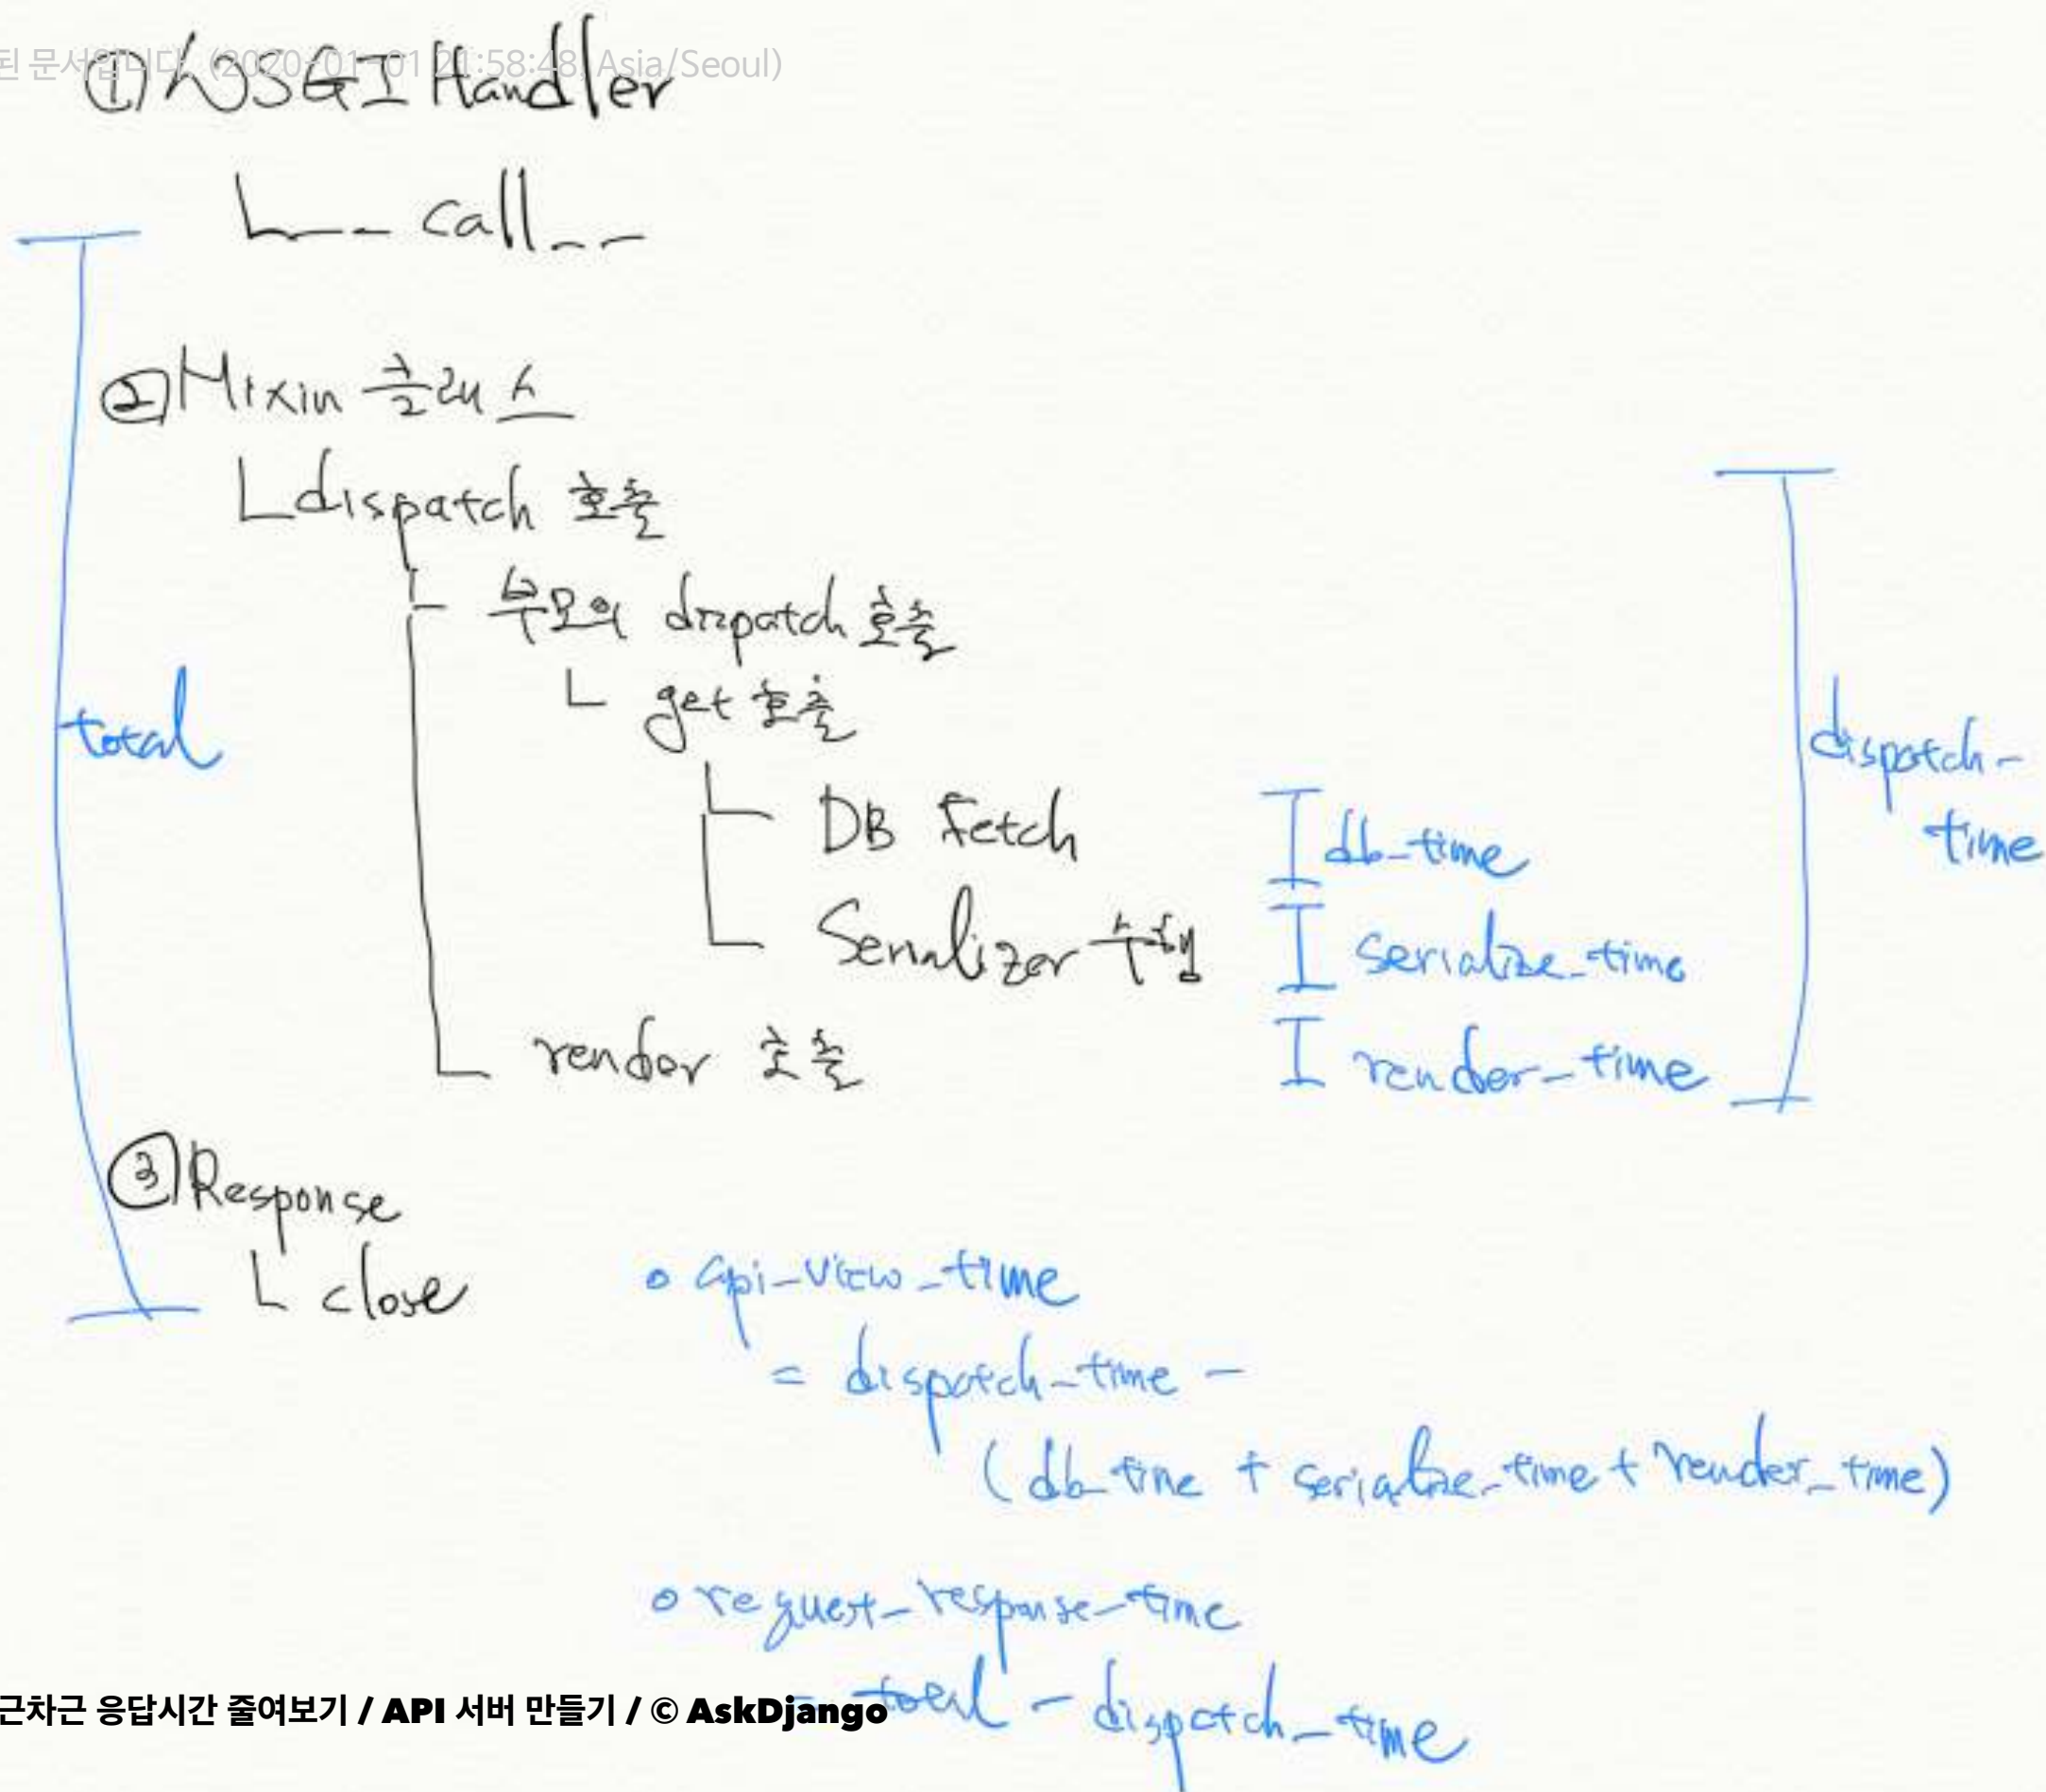 된 문서입니다. (2020-01-01 21:58:48, Asia/Seoul)
① WSGI Handler
__call__
② Mixin 클래스
dispatch 호출
부모의 dispatch 호출
get 호출
total
dispatch-
time
DB Fetch
db_time
Serializer 수행
serialize_time
render 호출
render_time
③ Response
close
api_view_time
= dispatch_time -
(db_time + serialize_time + render_time)
request_response_time
= total - dispatch_time
근차근 응답시간 줄여보기 / API 서버 만들기 / © AskDjango